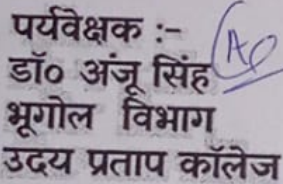 पर्यवेक्षक :-
डॉ० अंजू सिंह
भूगोल विभाग
उदय प्रताप कॉलेज